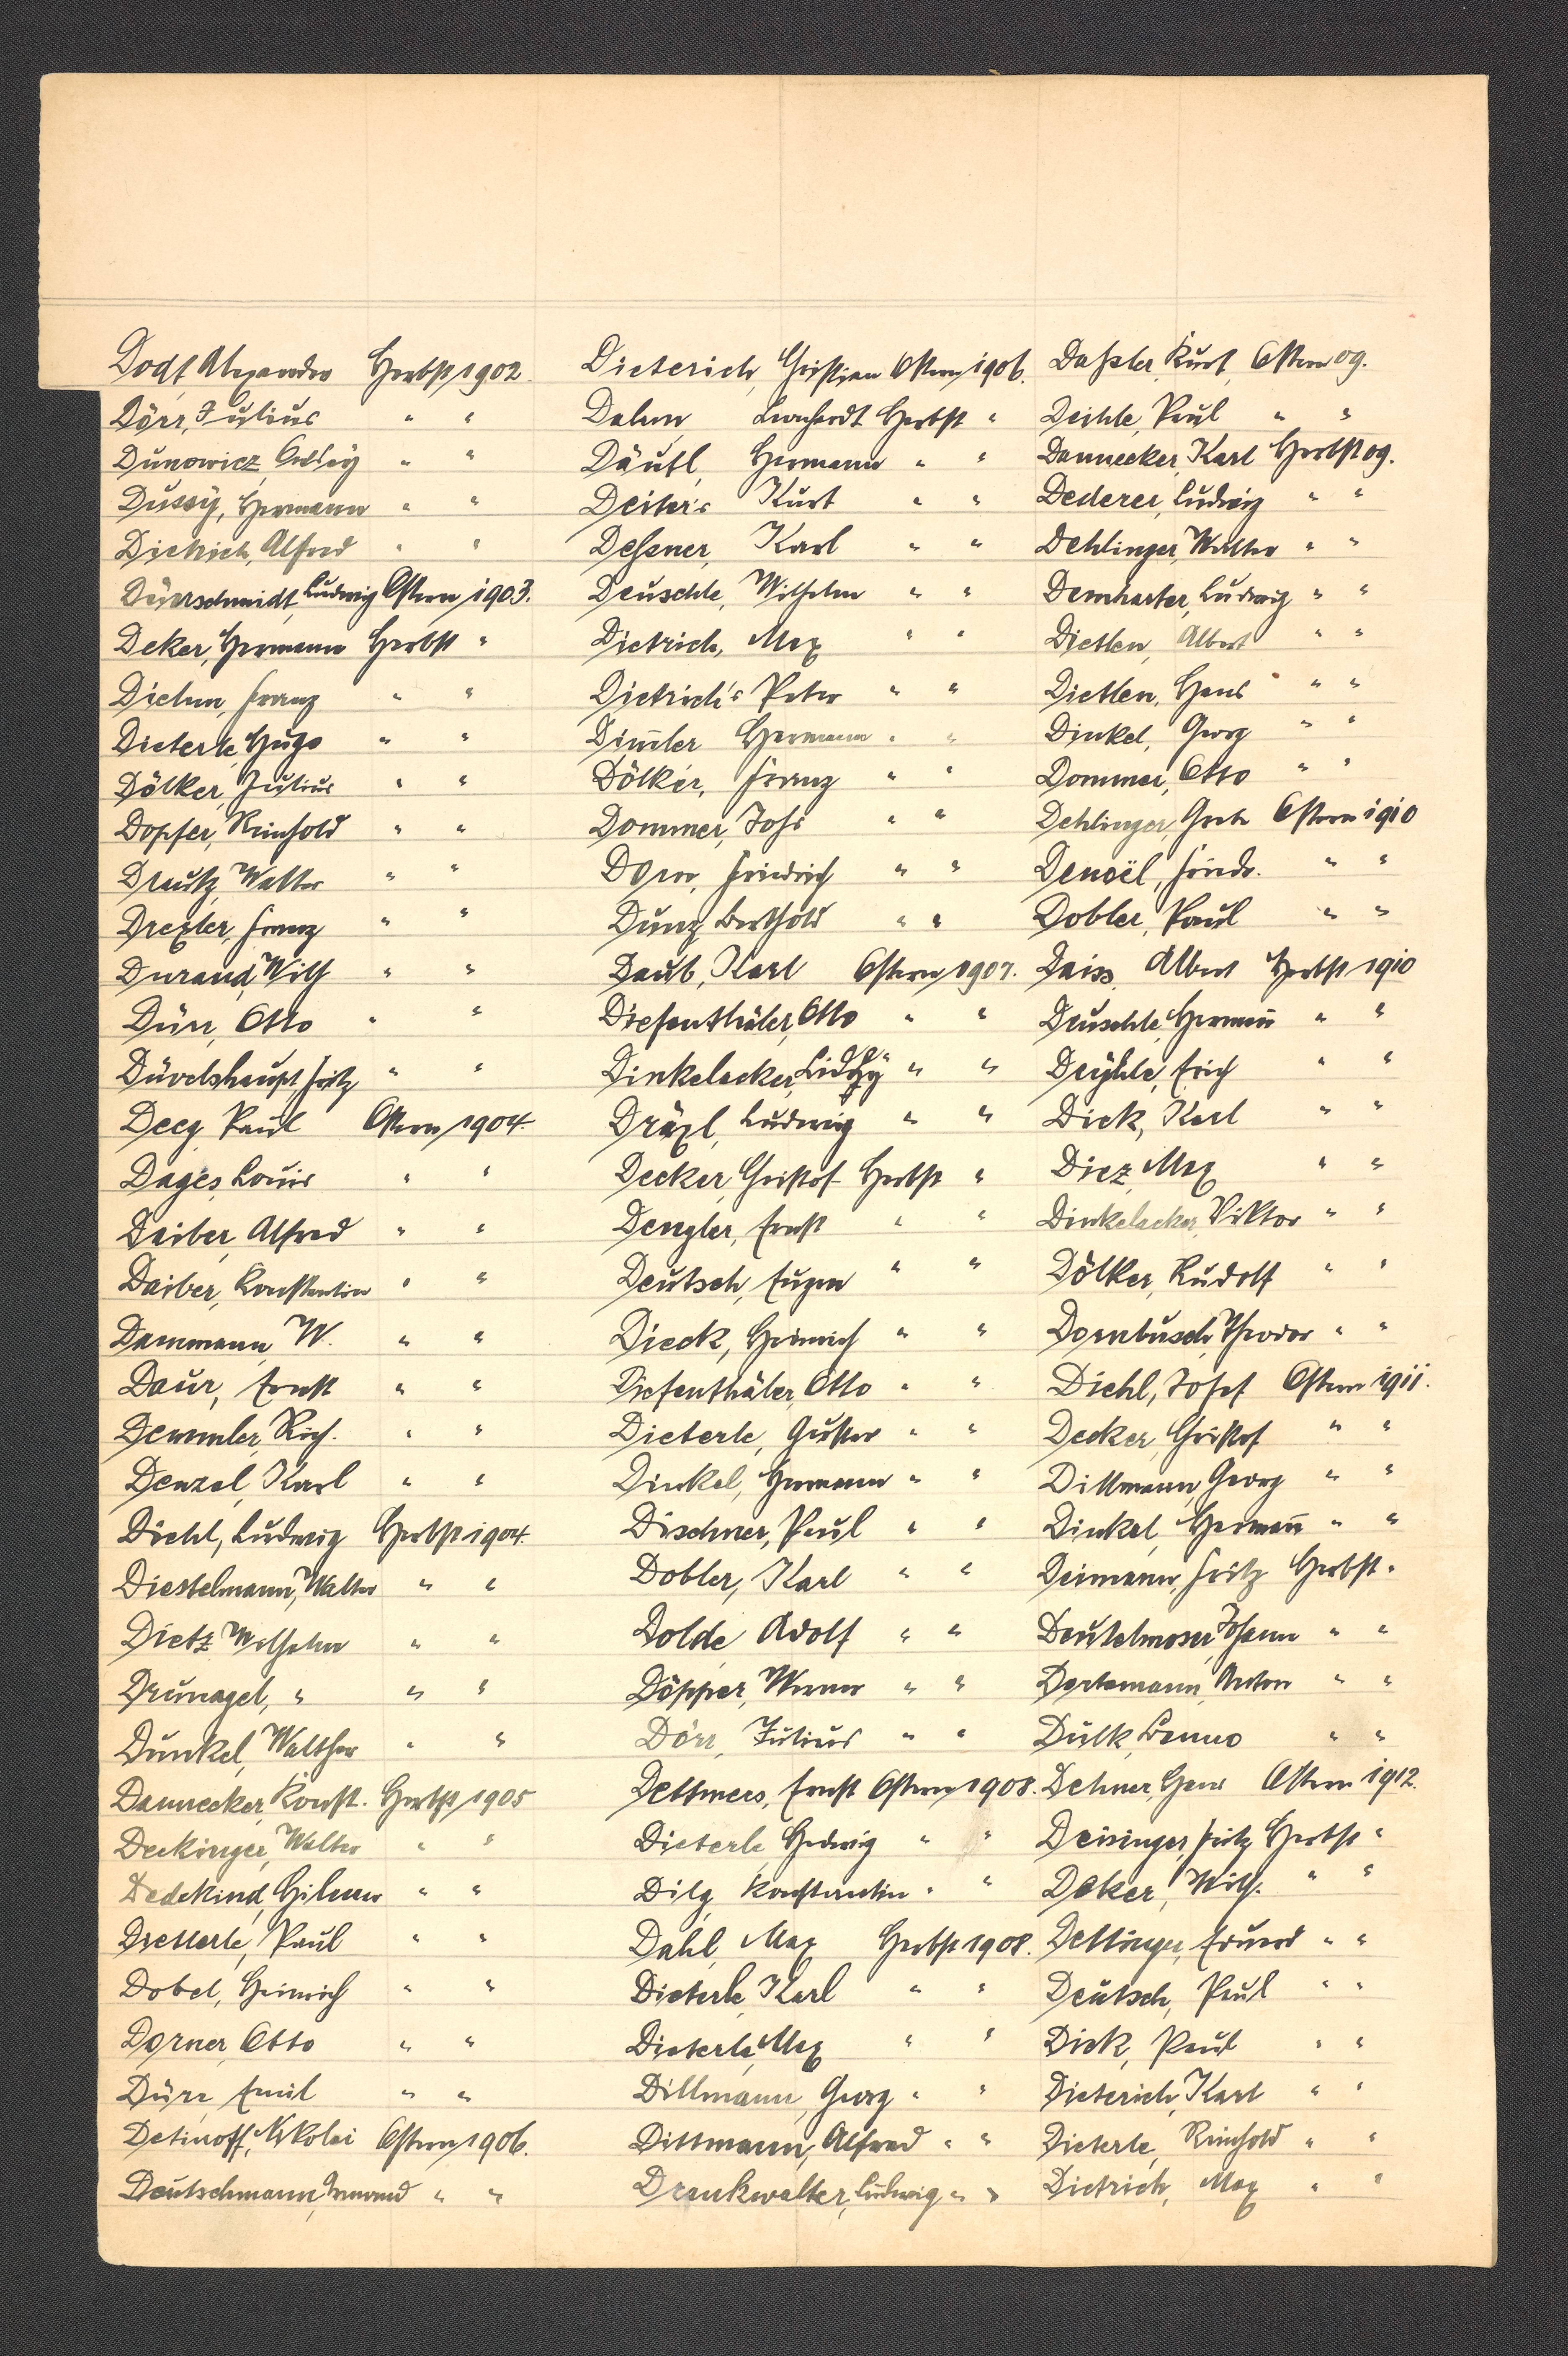 Dodt, Alexander Herbst 1902.
Dörr, Julius " "
Dunowicz, " "
Dussÿ, Hermann " "
Dietrich, Alfred " "
Dürrschmidt, Ludwig Ostern 1903.
Deker, Hermann Herbst "
Diehm, Franz " "
Dieterle, Hugo " "
Dölker, Julius " "
Dopfer, Reinhold " "
Drautz, Walter " "
Drexler, Franz " "
Durand, Wilh " "
Dürr, Otto " "
Düvelshaupt, Fritz " "
Deeg Paul Ostern 1904.
Dages, Louis " "
Daiber, Alfred " "
Daiber, Konstantin " "
Dammann, W. " "
Daur, Ernst " "
Demmler, Rich. " "
Denzel, Karl " "
Diehl, Ludwig Herbst 1904.
Diestelmann, Walter " "
Dietz Wilhelm " "
Drunagel, " " "
Dunkel, Walther " "
Dannecker, Konst. Herbst 1905
Deckinger, Walter " "
Dedekind, Hilmar " "
Dietterle, Paul " "
Dobel, Heinrich " "
Dorner, Otto " "
Dürr, Emil " "
Detinoff, Nikolai Ostern 1906.
Deutschmann, " "
Dieterich, Christian Ostern 1906.
Dahm Leonhardt Herbst "
Däutl, Hermann " "
Deiters Kurt " "
Deßner, Karl " "
Deuschle, Wilhelm " "
Dietrich, Max " "
Dietrichs Peter " "
Dim̅ler Hermann " "
Dölker, Franz " "
Dommer, Johs " "
Dorn, Friedrich " "
Dunz, Berthold " "
Daub, Karl Ostern 1907.
Diefenthäler, Otto " "
Dinkelacker, " "
Dräxl, Ludwig " "
Decker, Christof Herbst "
Dengler, Ernst " "
Deutsch, Eugen " "
Dieck, Heinrich " "
Diefenthäler, Otto " "
Dieterle, Gustav " "
Dinkel, Hermann " "
Dischner, Paul " "
Dobler, Karl " "
Dolde, Adolf " "
Döpper, Werner " "
Dörr, Julius " "
Dettmers, Ernst Ostern 1908.
Dieterle, Hedwig " "
Dilg Konstantin " "
Dahl, Max Herbst 1908.
Dieterle, Karl " "
Dieterle, Max " "
Dillmann, Georg " "
Dittmann, Alfred " "
Drankwalter, Ludwig " "
Daßler, Kurt, Ostern 09.
Deihle, Paul " "
Dannecker, Karl Herbst 09.
Dederer, Ludwig " "
Dehlinger, Walter " "
Demharter, Ludwig " "
Dietlen, Albert " "
Dietlen, Hans " "
Dinkel, Georg " "
Dommer, Otto " "
Dehlinger, Grete Ostern 1910
Denoël, Friedr. " "
Dobler, Paul " "
Daiss, Albert Herbst 1910
Deuschle, Herman̅ " "
Deÿhle, Erich " "
Dick, Karl " "
Diez, Max " "
Dinkelacker, Viktor " "
Dölker, Rudolf " "
Dornbusch, Theodor " "
Diehl, Josef Ostern 1911.
Decker, Christof " "
Dittmann, Georg " "
Dinkel, Herman̅ " "
Deimann, Fritz Herbst "
Deutelmoser, Johann " "
Dertemann, Anton " "
Dulk, Benno " "
Dehner, Hans Ostern 1912.
Deisinger, Fritz Herbst "
Deker, Wilh. " "
Dettinger, Eduard " "
Deutsch, Paul " "
Dick, Paul " "
Dieterich, Karl " "
Dieterle, Reinhold " "
Dietrich, Max " "